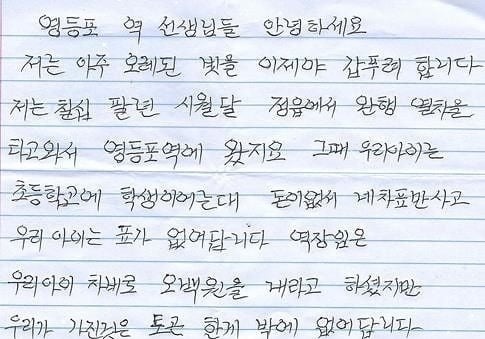 영등포 역 선생님들 안녕하세요
저는 아주 오레된 빛을 이제야 갑푸려 합니다
저는 칠십 팔년 시월달 정읍에서 완행 열차을
타고와서 영등포역에 왔지요 그때 우리아이는
초등학교에 학생이어는대 돈이없서 제차표만사고
우리 아이는 표가 없어답니다 역장임은
우리아이 차비로 오백원을 내라고 하셨지만
우리가 가진것은 토큰 한게 밖에 없어답니다